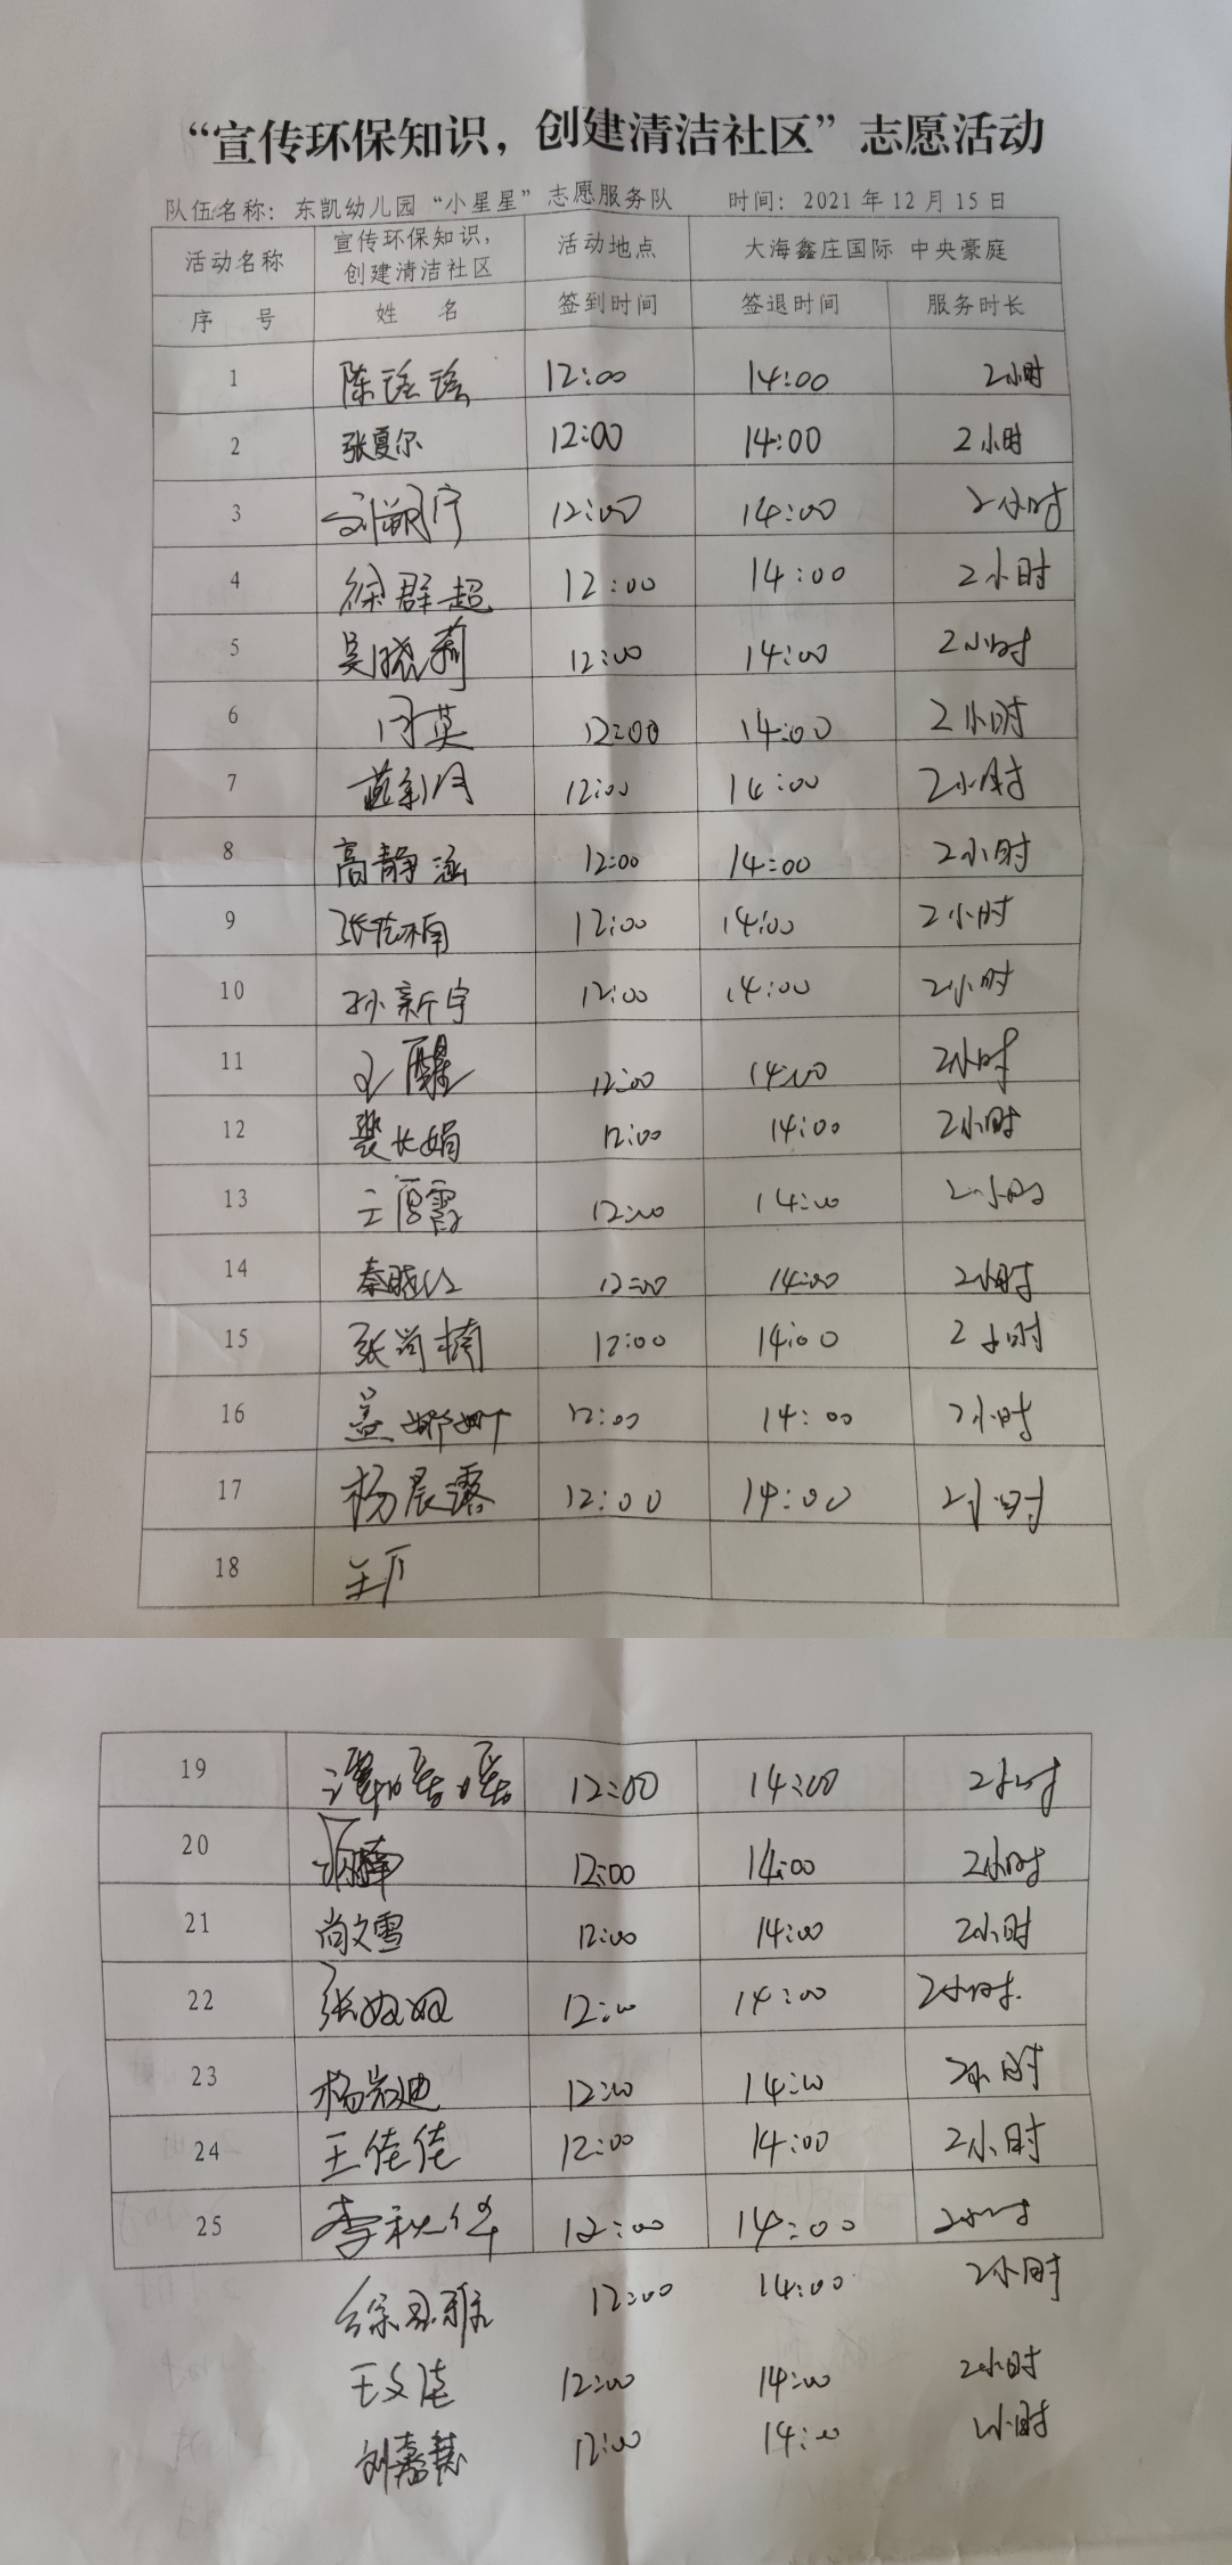 “宣传环保知识，创建清洁社区”志愿活动
队伍名称：东凯幼儿园“小星星”志愿服务队 时间：2021年12月15日
活动名称 宣传环保知识，创建清洁社区 活动地点 大海鑫庄国际 中央豪庭
序 号 姓 名 签到时间 签退时间 服务时长
1 陈瑶瑶 12:00 14:00 2小时
2 张夏尔 12:00 14:00 2小时
3 12:00 14:00 2小时
4 徐群超 12:00 14:00 2小时
5 吴晓莉 12:00 14:00 2小时
6 闫英 12:00 14:00 2小时
7 12:00 14:00 2小时
8 高静涵 12:00 14:00 2小时
9 12:00 14:00 2小时
10 孙新宇 12:00 14:00 2小时
11 12:00 14:00 2小时
12 裴长娟 12:00 14:00 2小时
13 12:00 14:00 2小时
14 秦晓红 12:00 14:00 2小时
15 张尚楠 12:00 14:00 2小时
16 吴娜娜 12:00 14:00 2小时
17 杨晨露 12:00 14:00 2小时
18
19 12:00 14:00 2小时
20 12:00 14:00 2小时
21 尚文雪 12:00 14:00 2小时
22 张妞妞 12:00 14:00 2小时.
23 杨岩迪 12:00 14:00 2小时
24 王佳佳 12:00 14:00 2小时
25 李秋华 12:00 14:00 2小时
12:00 14:00 2小时
王文佳 12:00 14:00 2小时
刘嘉慧 12:00 14:00 2小时